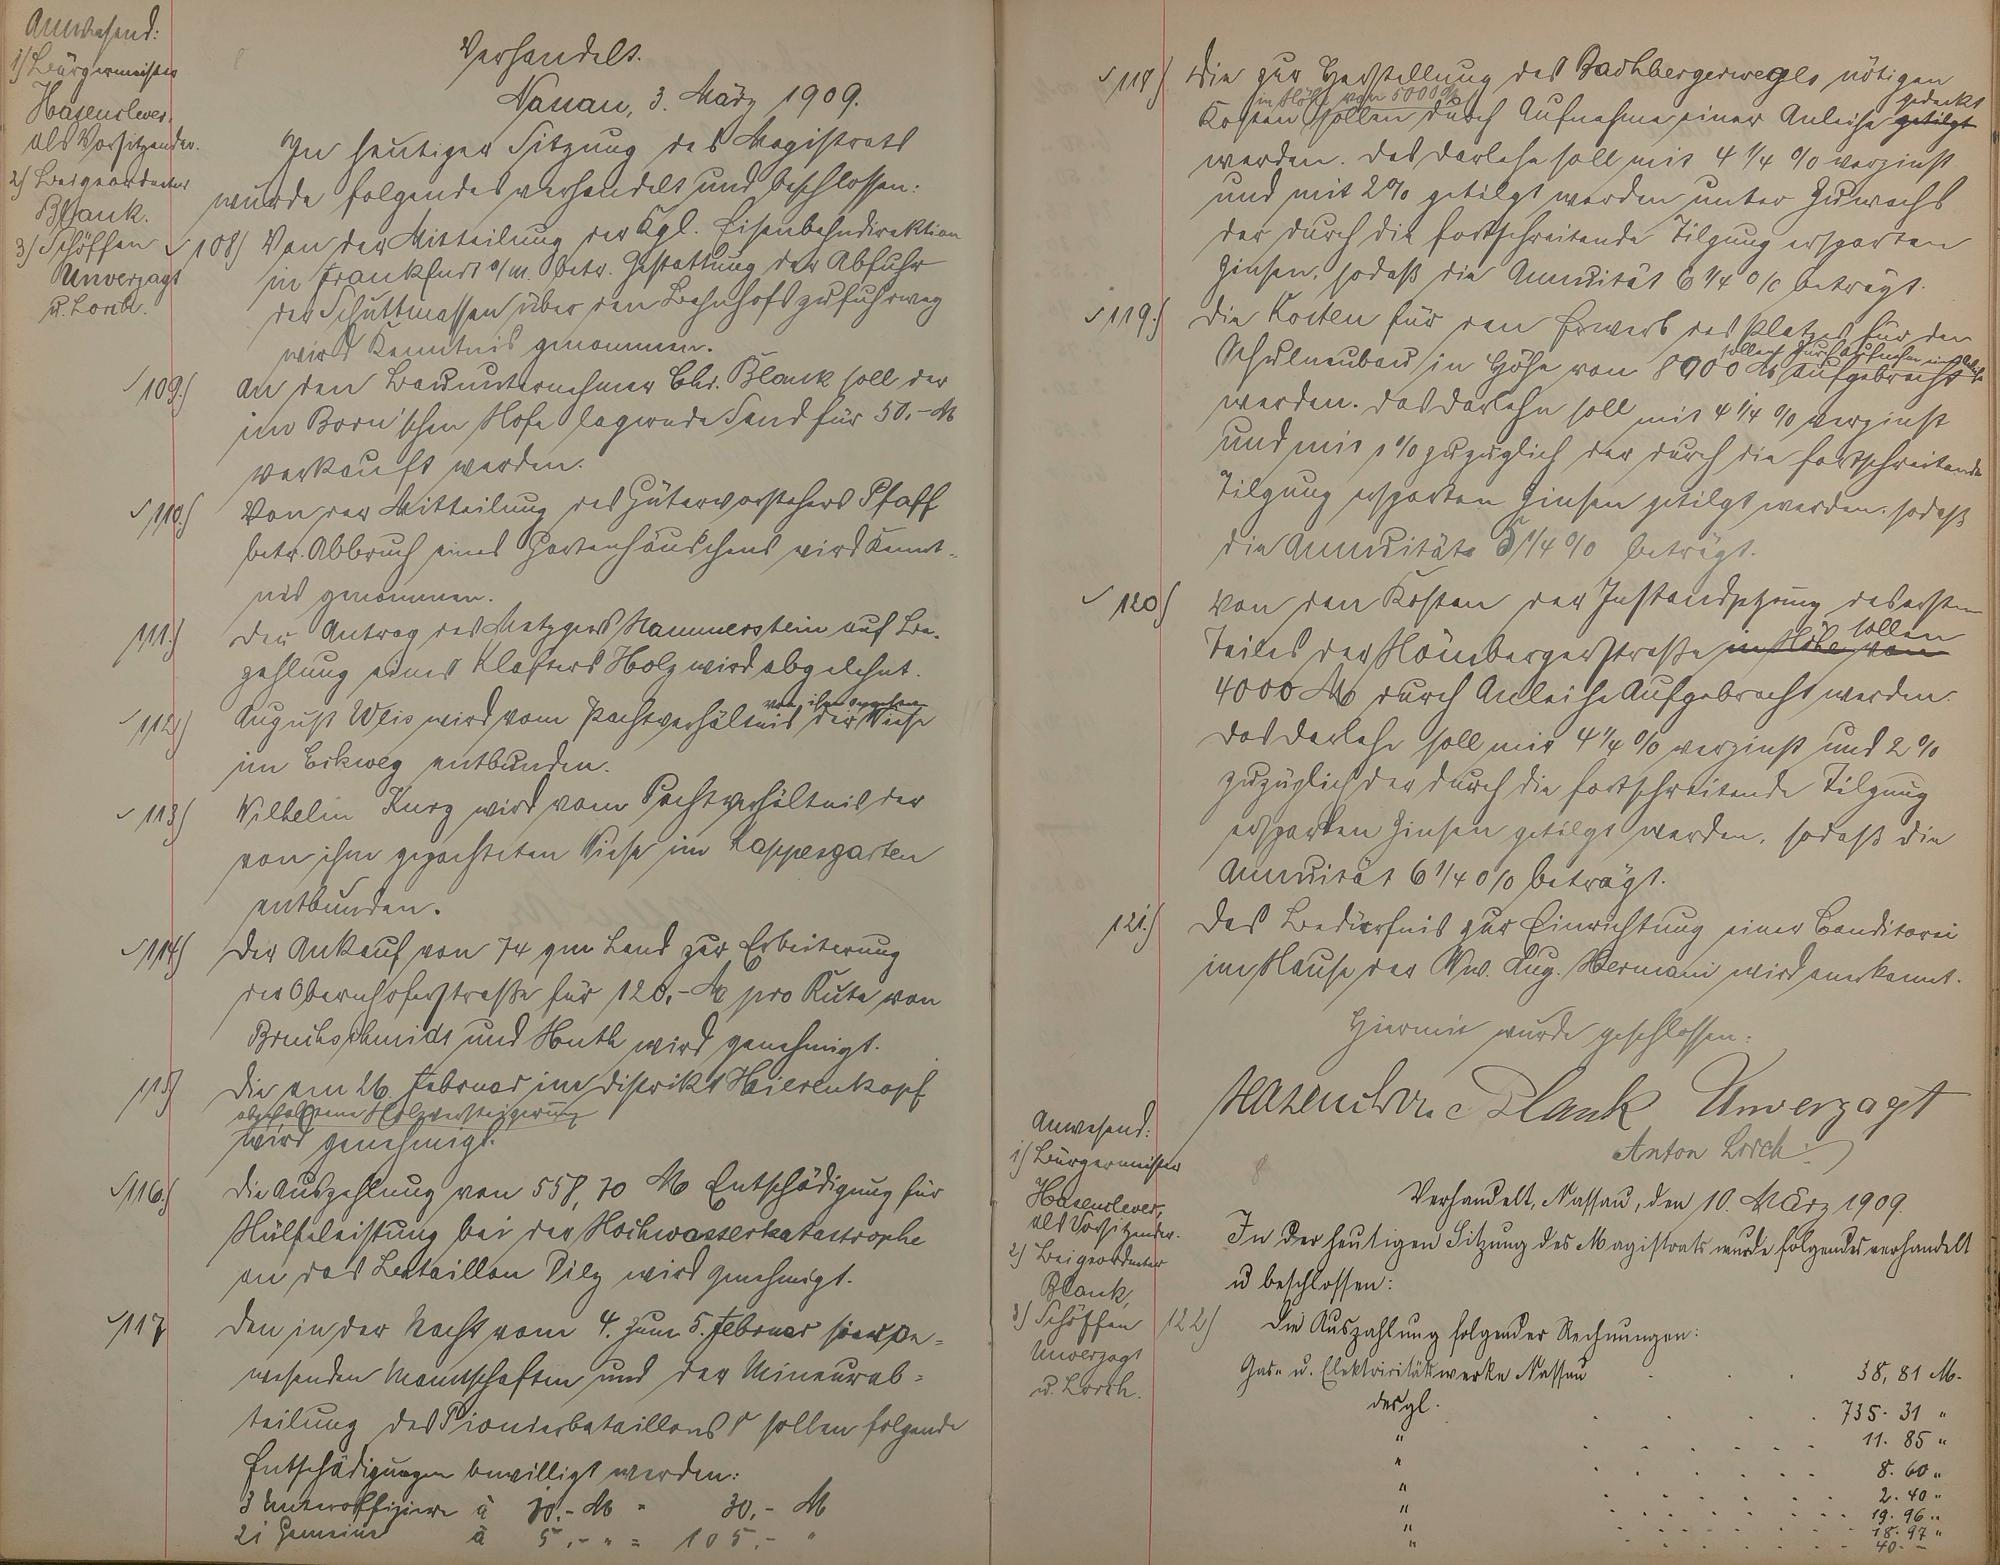 Anwesend:
1) Bürgermeister
Hasenclever
als Vorsitzender.
2) Beigeordneter
Blank.
3) Schöffen
Unverzagt
u. Lorch.
Verhandelt.
Nassau, 3. März 1909.
In heutiger Sitzung des Magistrats
wurde folgendes verhandelt und beschlossen:
108) Von der Mitteilung der Kgl. Eisenbahndirektion
in Frankfurt a/M. betr. Gestattung der Abfuhr
der Schuttmassen über den Bahnhofszufuhrweg
wird Kenntnis genommen.
109.) An den Bauunternehmer Chr. Blank soll der
im Born'schen Hofe lagernde Sand für 50,- M
verkauft werden.
110.) Von der Mitteilung des Gütervorstehers Pfaff
betr. Abbruch eines Gartenhäuschens wird Kennt-
nis genommen.
111.) Der Antrag des Metzgers Hammerstein auf Be-
zahlung eines Klafters Holz wird abgelehnt.
112) August Weis wird vom Pachtverhältnis der von ihm Wiese
im Eckweg entbunden.
113) Wilhelm Kurz wird vom Pachtverhältnis der
von ihm gepachteten Wiese im Kappesgarten
entbunden.
114) Der Ankauf von 74 qm Land zur Erbeiterung
der Obernhoferstraße für 120,- M pro Rute von
Bruchschmidt und Huth wird genehmigt.
115) Die am 26. Februar im Distrikt Heierenkopf
abgehaltene Holzversteigerung
wird genehmigt.
116.) Die Auszahlung von 558,70 M Entschädigung für
Hülfeleistung bei der Hochwasserkatastrophe
an das Bataillon Diez wird genehmigt.
117 Den in der Nacht vom 4. zum 5. Februar hier ge-
wesenden Mannschaften und der Mineurab-
teilung des Pionierbataillons sollen folgende
Entschädigungen bewilligt werden:
3 Unteroffiziere à 10.- M = 30,- M
21 Gemeine à 5,- " = 105,- "
118) Die zur Herstellung des Bachbergerweges nötigen
in Höhe von 5000 M
Kosten sollen durch Aufnahme einer Anleihe getilgt gedeckt
werden. Das Darlehn soll mit 4 1/4 % verzinst
und mit 2% getilgt werden unter Zuwachs
der durch die fortschreitende Tilgung ersparten
Zinsen, sodaß die Annuität 6 1/4 % beträgt.
119.) Die Kosten für den Erwerb des Platzes für den
Schulneubau in Höhe von 8900 M sollen durch Aufnahme aufgebracht
werden. Das Darlehn soll mit 4 1/4 % verzinst
und mit 1% zuzüglich der durch die fortschreitende
Tilgung ersparten Zinsen getilgt werden, sodaß
die Annuität 5 1/4 % beträgt.
120) Von den Kosten der Instandsetzung des ersten
Teiles der Hömbergerstraße in Höhe von sollen
4000 M durch Anleihe Aufgebracht werden.
Das Darlehn soll mit 4 1/4 % verzinst und 2 %
zuzüglich der durch die fortschreitende Tilgung
ersparten Zinsen getilgt werden, sodaß die
Annuität 6 1/4 % beträgt.
121.) Das Bedürfnis zur Einrichtung einer Conditorei
im Hause der Ww. Aug. Hermani wird anerkannt.
Hiermit wurde geschlossen:
Hasenclever Blank Unverzagt
Anton Lorch
Anwesend:
1) Bürgermeister
Hasenclever,
als Vorsitzender.
2) Beigeordneter
Blank,
3) Schöffen
Unverzagt
u. Lorch.
Verhandelt, Nassau, den 10. März 1909.
In der heutigen Sitzung des Magistrats wurde folgendes verhandelt
u beschlossen:
122) Die Auszahlung folgender Rechnungen:
Gas- u. Elektricitätswerke Nassau 38,81 M.
desgl. 735. 31 "
" 11. 85 "
" 8. 60 "
" 2. 40 "
" 19. 96 "
" 18. 97 "
" 40. -